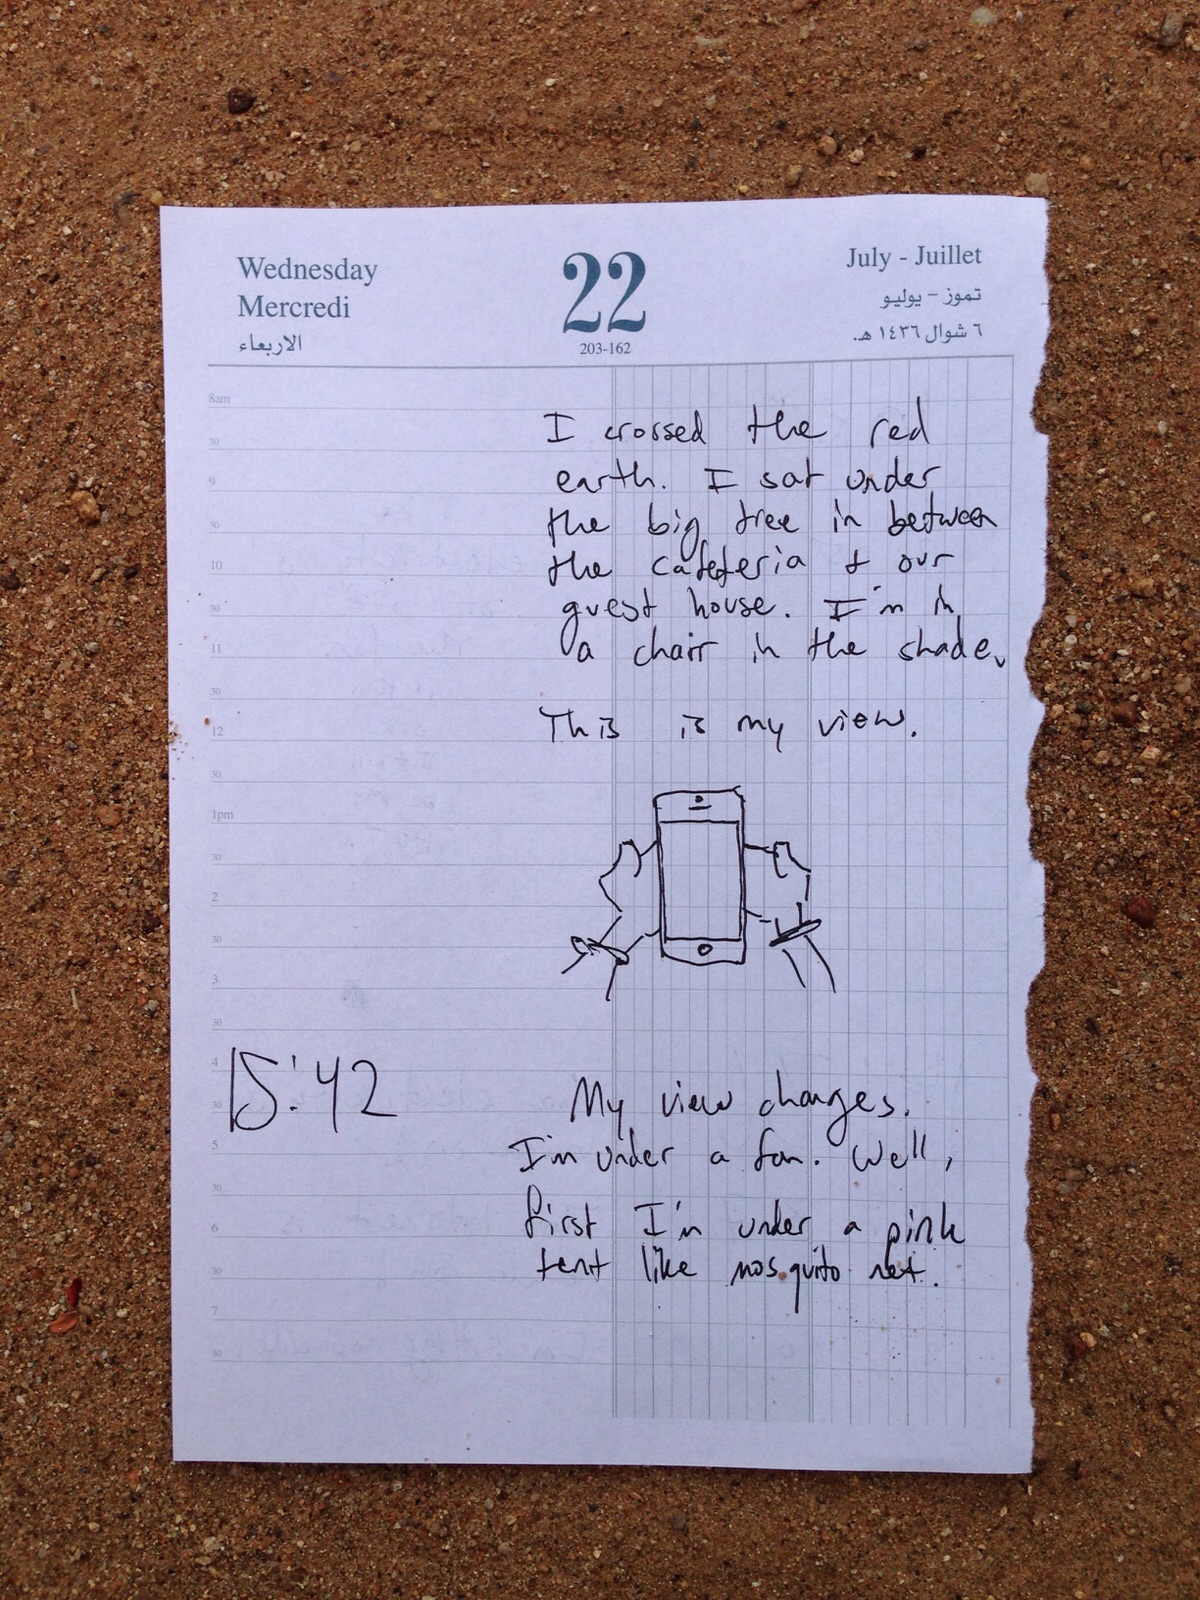 Wednesday
Mercredi
الاربعاء
22
203-162
July - Juillet
تموز - يوليو
٦ شوال ١٤٣٦ هـ.
8am
30
9
30
10
30
11
30
12
30
1pm
30
2
30
3
30
4
30
5
30
6
30
7
30
I crossed the red
earth. I sat under
the big tree in between
the cafeteria & our
guest house. I'm in
a chair in the shade.
This is my view.
15:42
My view changes.
I'm under a fan. Well,
first I'm under a pink
tent like mosquito net.